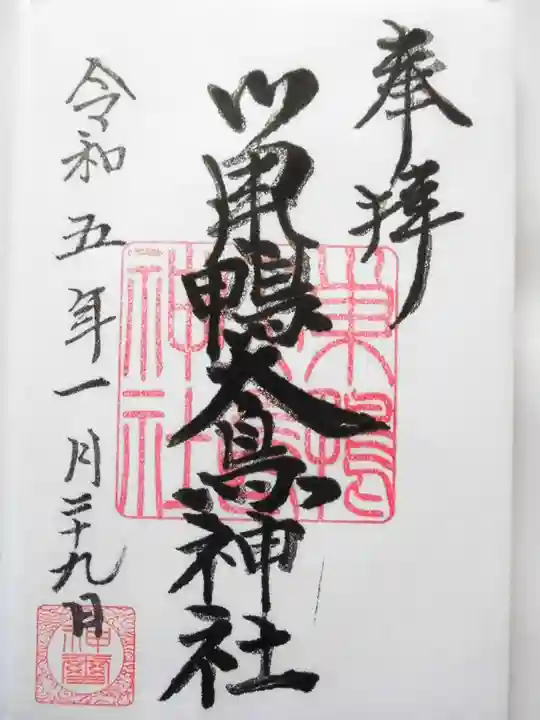 奉拝
巣鴨大鳥神社
令和五年一月二十九日
巣鴨
大鳥
神社